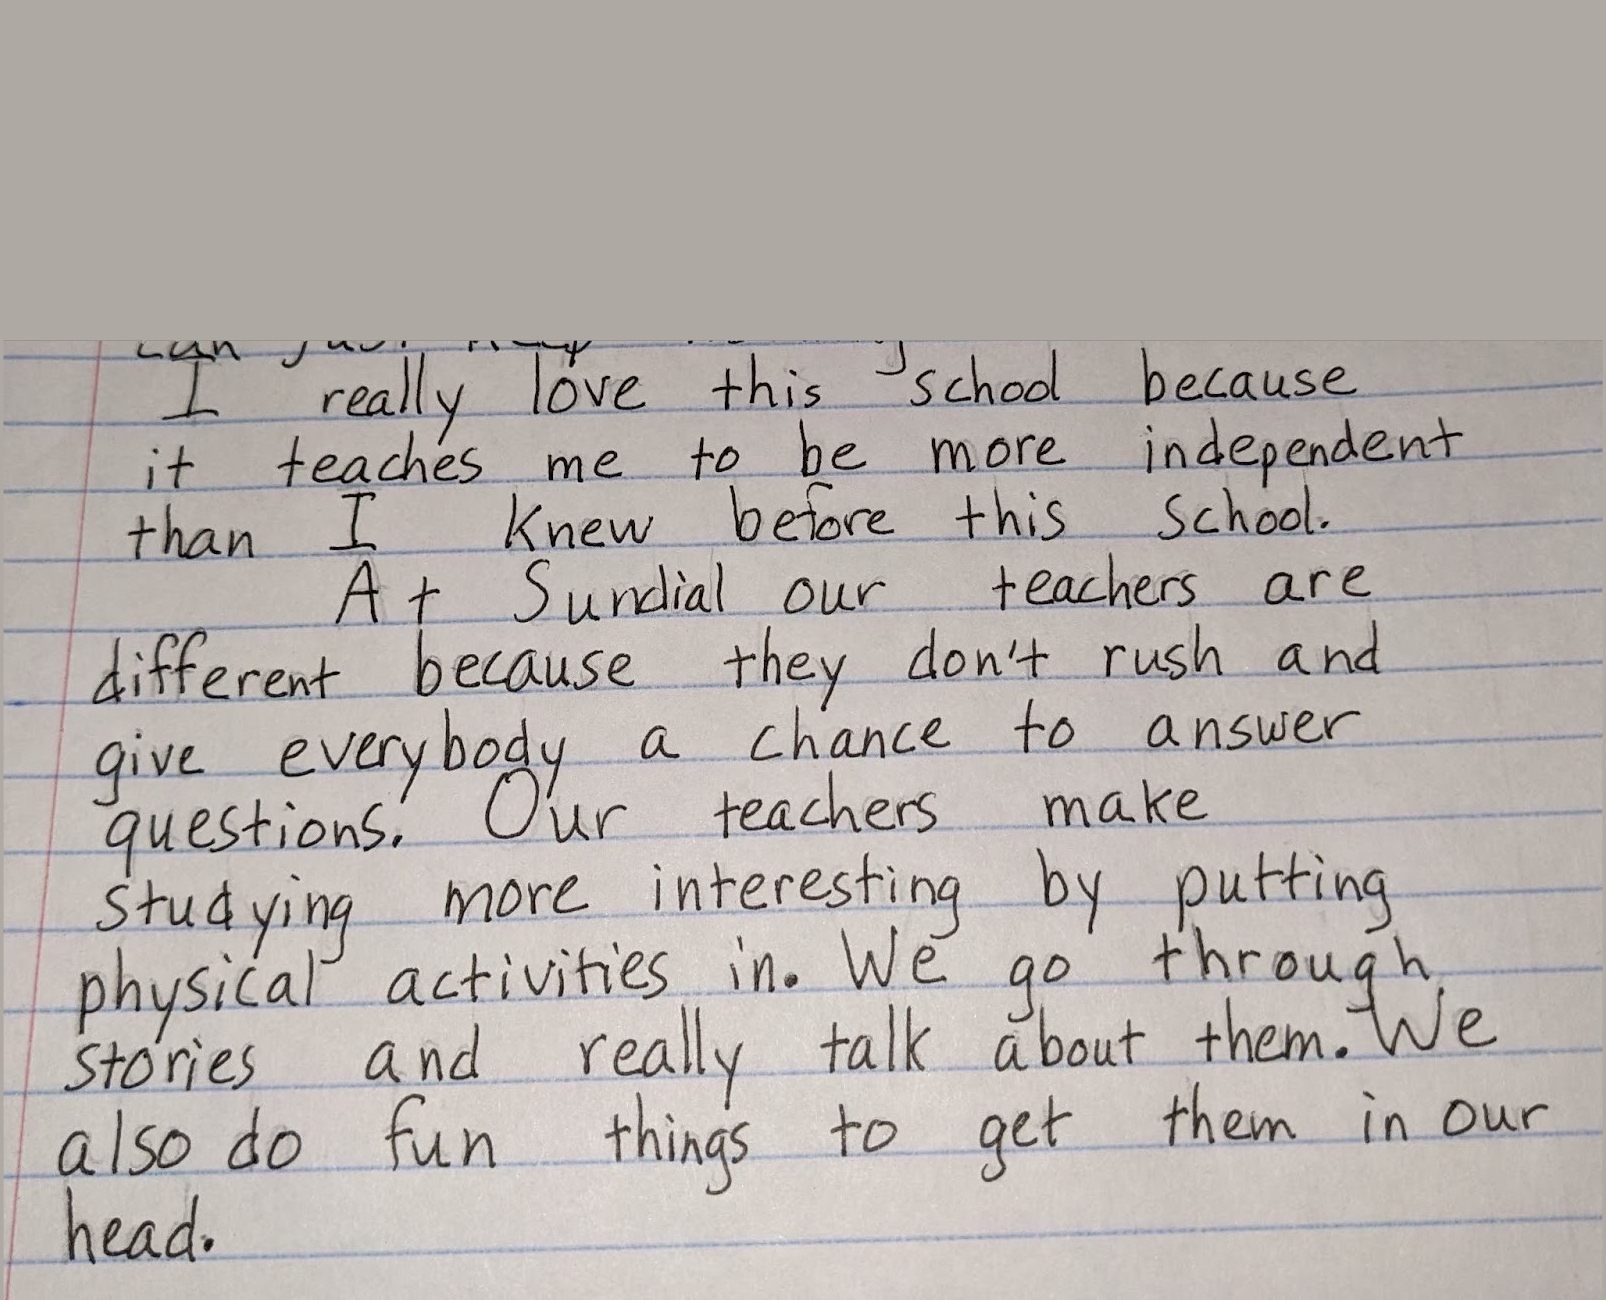 I really love this school because
it teaches me to be more independent
than I knew before this school.
At Sundial our teachers are
different because they don't rush and
give everybody a chance to answer
questions. Our teachers make
studying more interesting by putting
physical activities in. We go through
stories and really talk about them. We
also do fun things to get them in our
head.